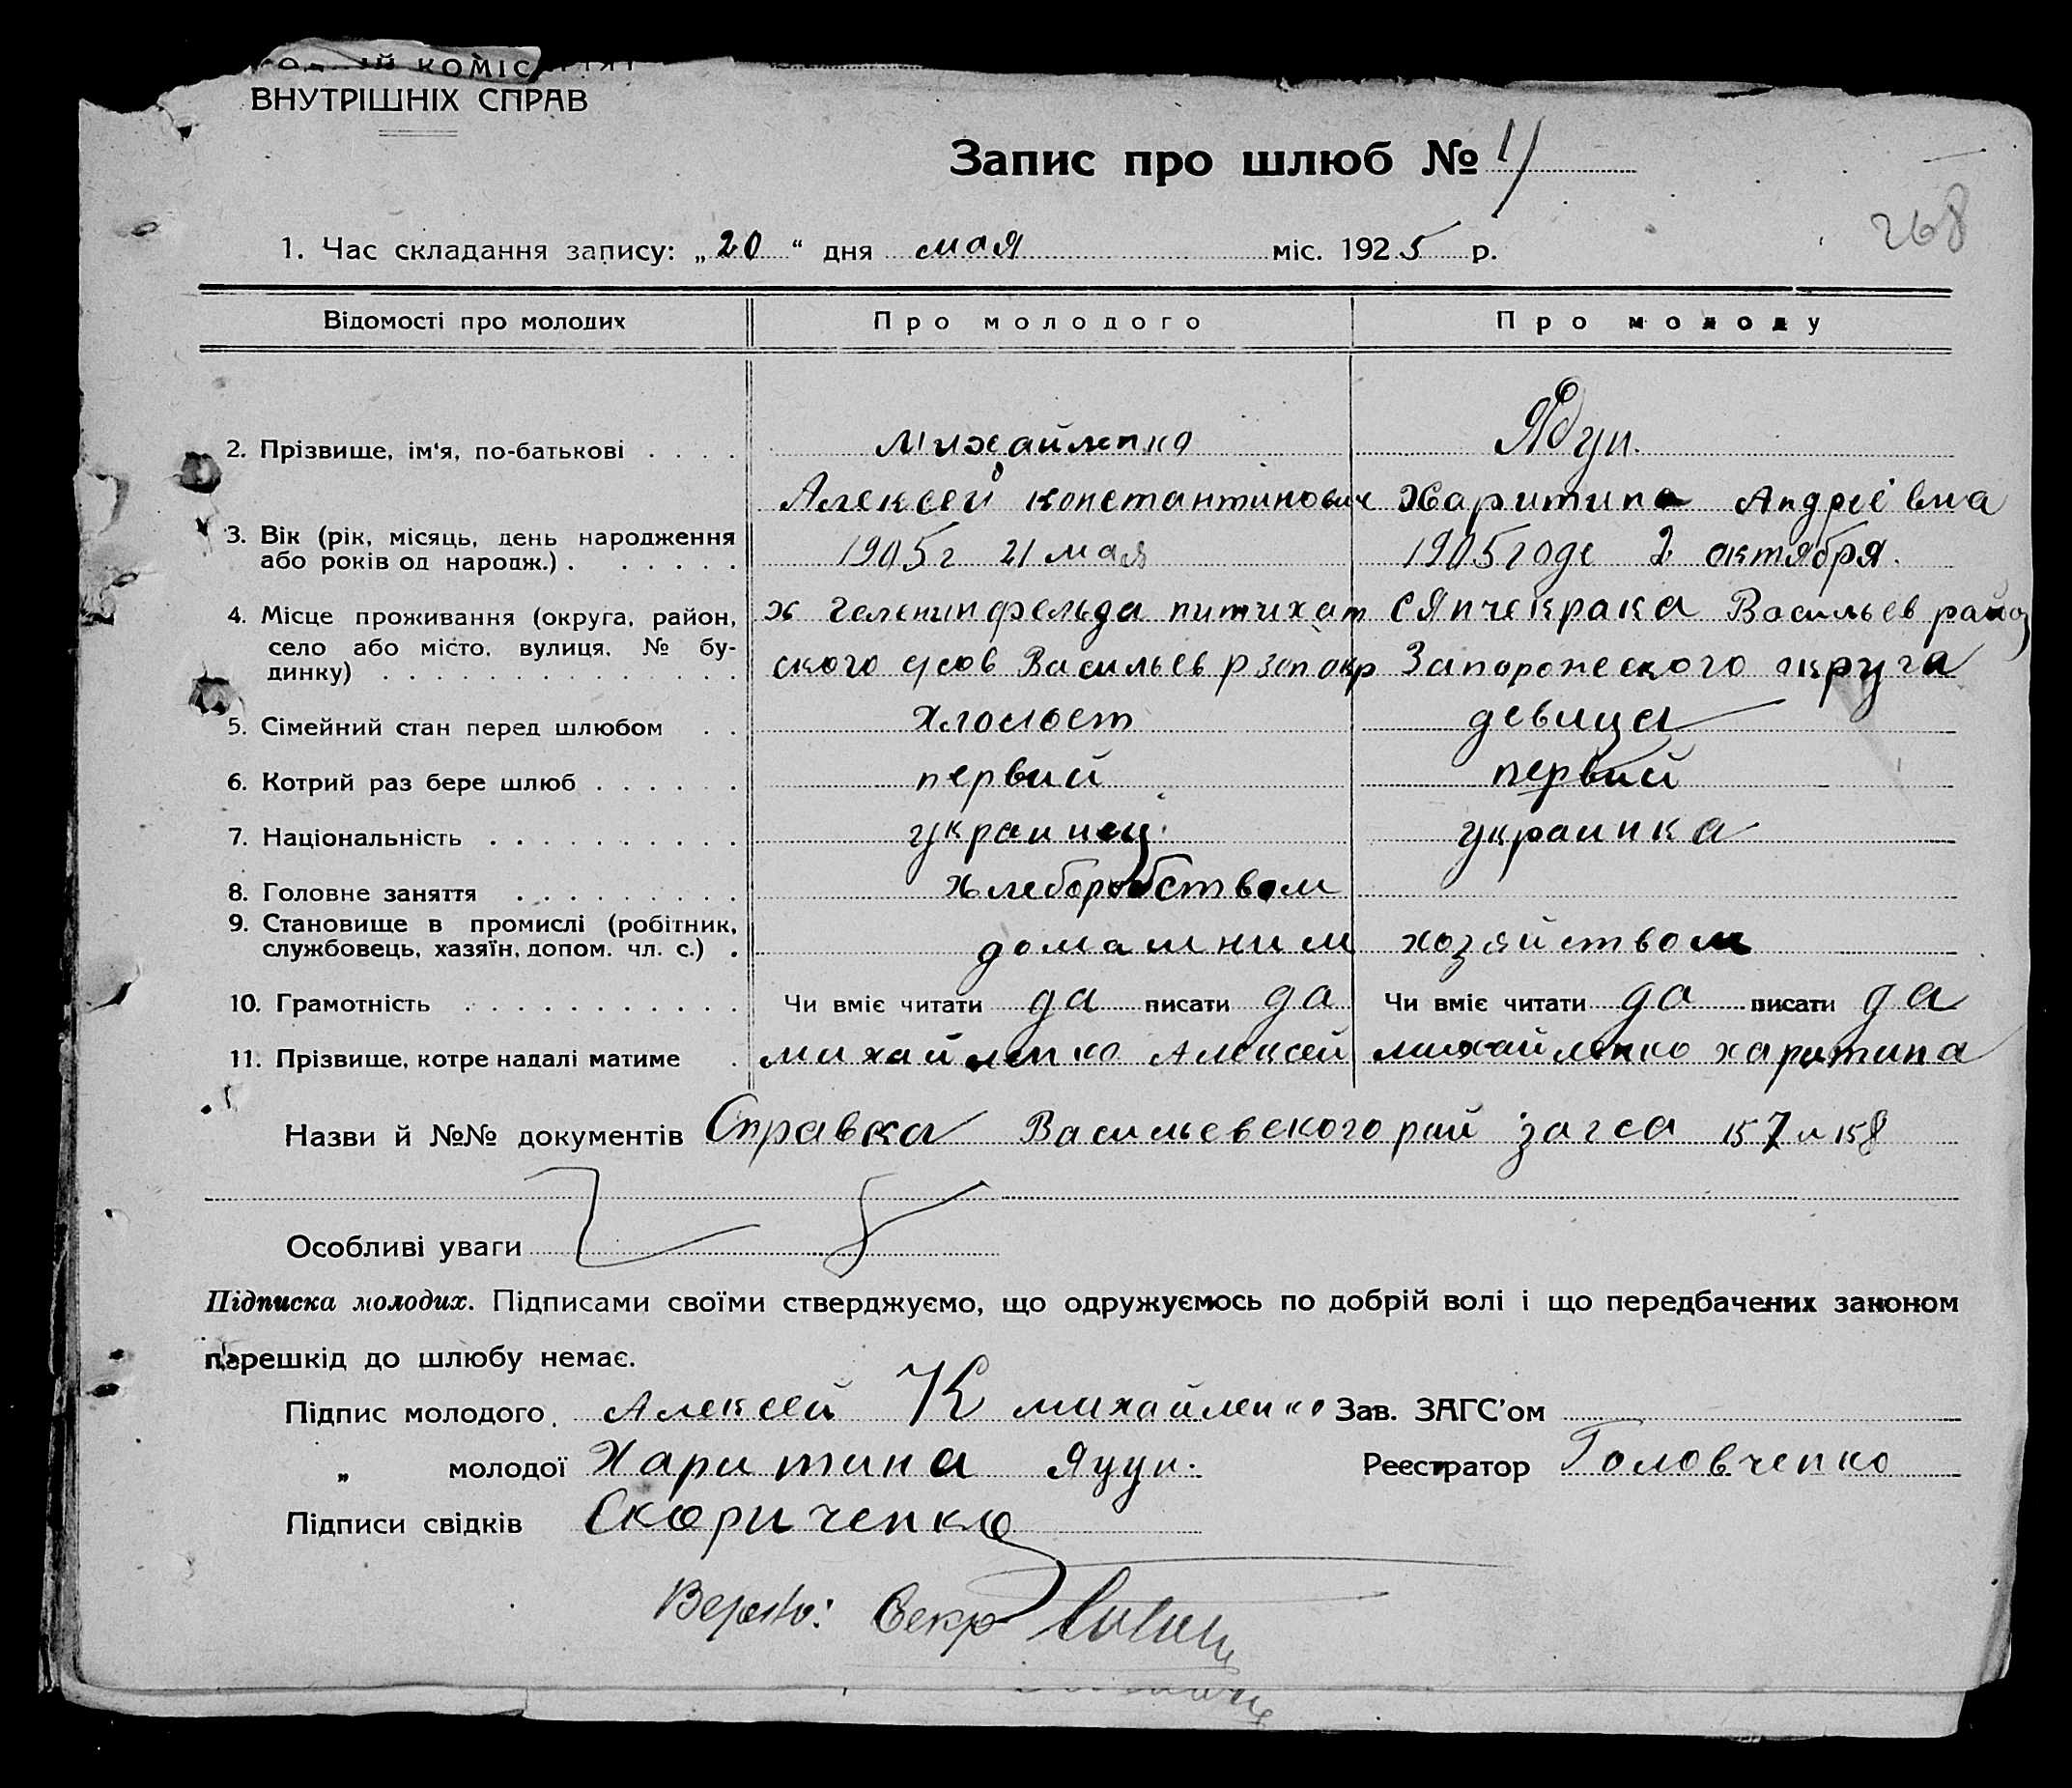 КОМІС
ВНУТРІШНІХ СПРАВ
Запис про шлюб № 11
268
1. Час складання запису: „20“ дня мая міс. 1925 р.
Відомості про молодих Про молодого Про молоду
2. Прізвище, ім'я, по-батькові Михайленко
Алексей константинович Харитина Андріевна
3. Вік (рік, місяць, день народження
або років од народж.) 1905г 21 мая 1905годе 2 октября.
4. Місце проживання (округа, район,
село або місто, вулиця, № бу-
динку)
х геленинфельда питихат сЯнчекрака Васильев район
ского Васильев р зап окр Запорожского округа
5. Сімейний стан перед шлюбом хлолост девица
6. Котрий раз бере шлюб первий первий
7. Національність украинец украинка
8. Головне заняття хлеборобством
9. Становище в промислі (робітник,
службовець, хазяїн, допом. чл. с.) домашним хозяйством
10. Грамотність Чи вміє читати да писати да Чи вміє читати да писати да
11. Прізвище, котре надалі матиме михайленко Алексей михайленко харитина
Назви й №№ документів Справка Васильевского рай загса 157 и 158
Особливі уваги
Підписка молодих. Підписами своїми стверджуємо, що одружуємось по добрій волі і що передбачених законом
перешкід до шлюбу немає.
Підпис молодого Алексей К михайленко Зав. ЗАГС'ом
„ молодої Харитина Яцун. Реєстратор Головченко
Підписи свідків Скориченко
Верно: Секр